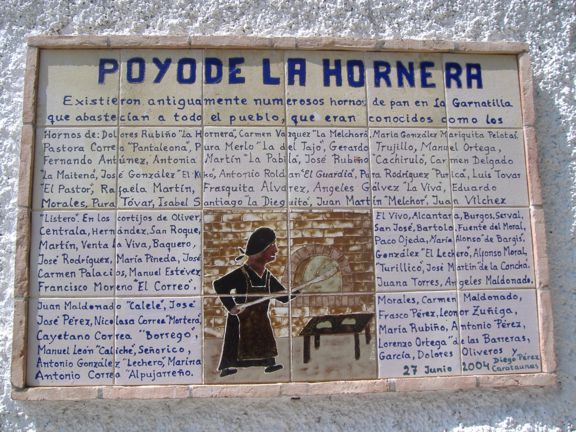 POYO DE LA HORNERA
Existieron antiguamente numerosos hornos de pan en La Garnatilla
que abastecían a todo el pueblo, que eran conocidos como los
Hornos de: Dolores Rubiño "La Hornera", Carmen Vázquez "La Melchora", María González Mariquita Pelotas,
Pastora Correa "Pantaleona", Pura Merlo "La del Tajo", Gerardo Trujillo, Manuel Ortega,
Fernando Antúnez, Antonia Martín "La Pabila", José Rubiño "Cachirulo", Carmen Delgado
"La Maitena", José González "El Kiko", Antonio Roldán "El Guardia", Pura Rodríguez "Purica", Luis Tovar
"El Pastor", Rafaela Martín, Frasquita Alvarez, Angeles Gálvez "La Viva", Eduardo
Morales, Pura Tóvar, Isabel Santiago "La Dieguita", Juan Martín "Melchor", Juan Vílchez
"Listero". En los cortijos de Oliver,
Centrala, Hernández, San Roque,
Martín, Venta la Viva, Baquero,
José Rodríguez, María Pineda, José
Carmen Palacios, Manuel Estévez
Francisco Moreno "El Correo".
El Vivo, Alcantara, Burgos, Serval,
San José, Bartolo, Fuente del Moral,
Paco Ojeda, María Alonso "de Bargis",
González "El Lechero", Alfonso Moral,
"Turillico", José Martín "de la Concha"
Juana Torres, Angeles Maldonado.
Juan Maldonado "Calele", José
José Pérez, Nicolasa Correa "Mortera",
Cayetano Correa "Borrego",
Manuel León "Caliche", Señorico,
Antonio González "Lechero", Marina
Antonio Correa "Alpujarreño".
Morales, Carmen Maldonado,
Frasco Pérez, Leonor Zuñiga,
María Rubiño, Antonio Pérez,
Lorenzo Ortega "de las Barreras,
García, Dolores Oliveros y
27 Junio 2004
Diego Pérez
Carataunas